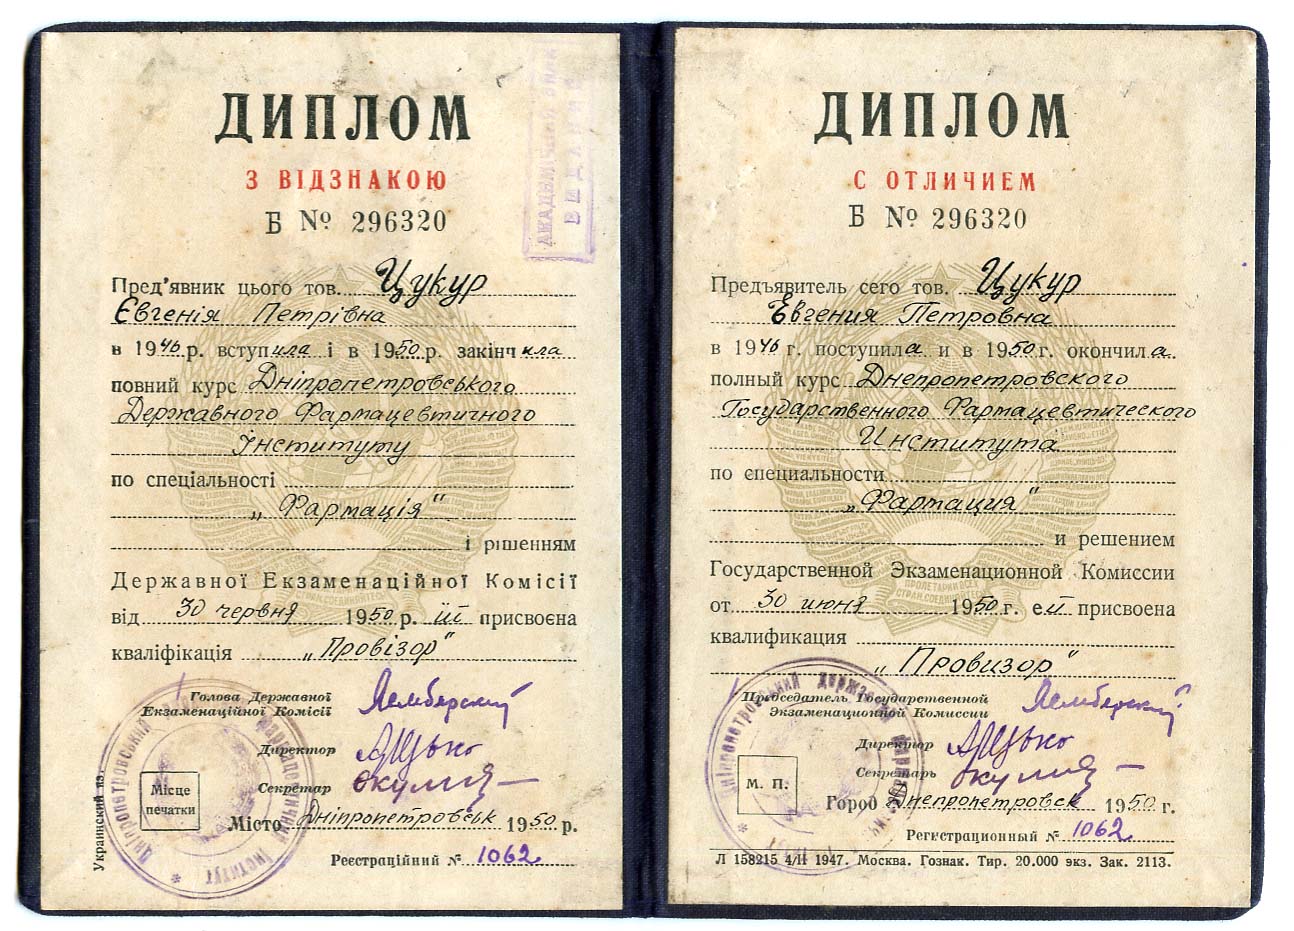 ДИПЛОМ
З ВІДЗНАКОЮ
Б № 296320
АКАДЕМІЧНИЙ
ВИДАНО
Пред'явник цього тов. Цукур
Євгенія Петрівна
в 1946 р. вступила і в 1950 р. закінчила
повний курс Дніпропетровського
Державного Фармацевтичного
Інституту
по спеціальності
„Фармація"
і рішенням
Державної Екзаменаційної Комісії
від 30 червня 1950 р. їй присвоєна
кваліфікація „Провізор"
Голова Державної
Екзаменаційної Комісії
Директор
Секретар
Місце
печатки
Місто Дніпропетровськ 1950 р.
Реєстраційний № 1062
Украинский яз.
ДИПЛОМ
С ОТЛИЧИЕМ
Б № 296320
Предъявитель сего тов. Цукур
Евгения Петровна
в 1946 г. поступила и в 1950 г. окончила
полный курс Днепропетровского
Государственного Фармацевтического
Института
по специальности
„Фармация"
и решением
Государственной Экзаменационной Комиссии
от 30 июня 1950 г. ей присвоена
квалификация
„Провизор"
Председатель Государственной
Экзаменационной Комиссии
Директор
Секретарь
М. П.
Город Днепропетровск 1950 г.
Регистрационный № 1062
Л 158215 4/II 1947. Москва. Гознак. Тир. 20.000 экз. Зак. 2113.